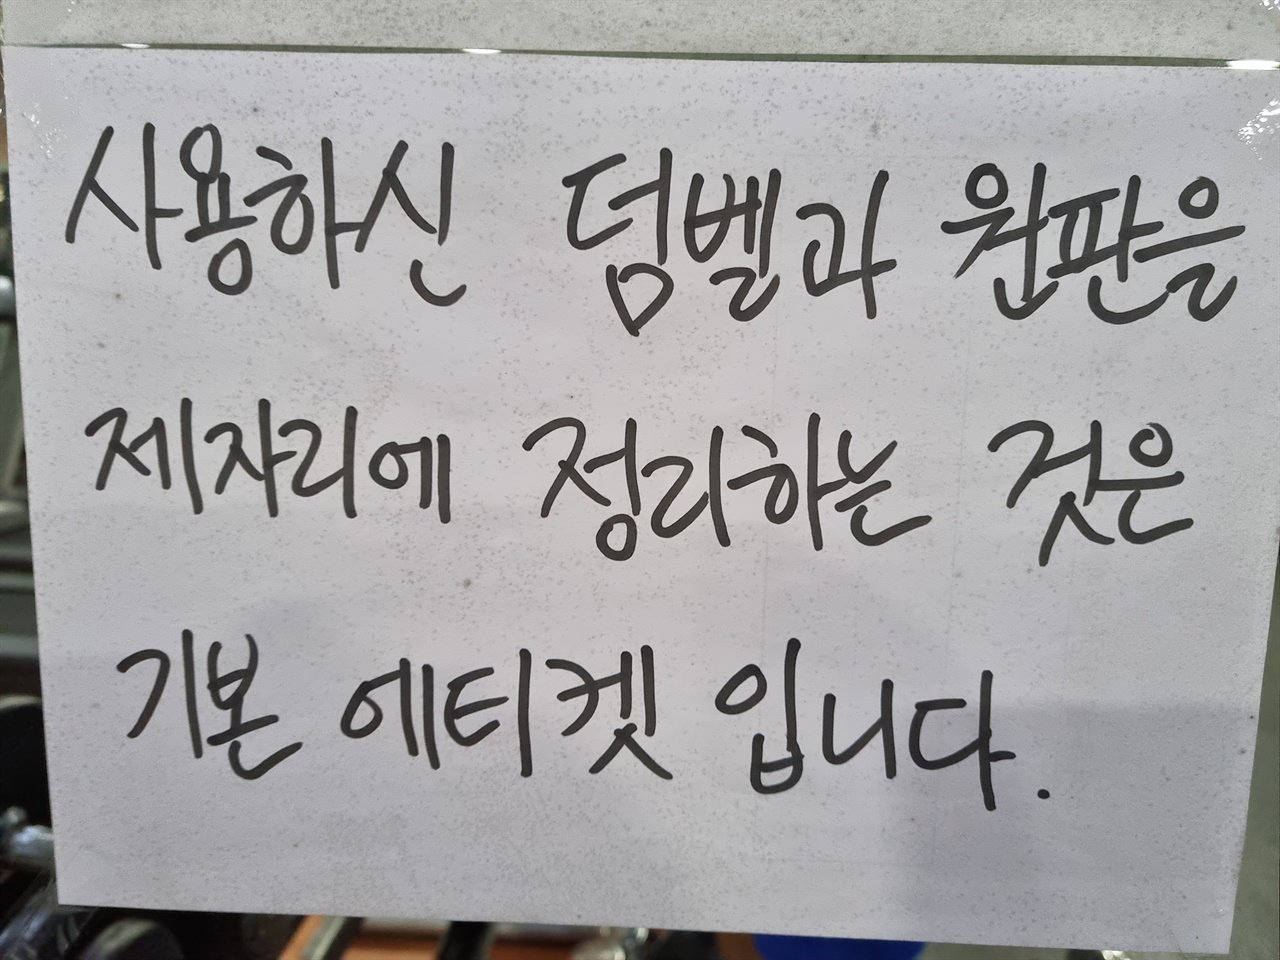 사용하신 덤벨과 원판을
제자리에 정리하는 것은
기본 에티켓 입니다.